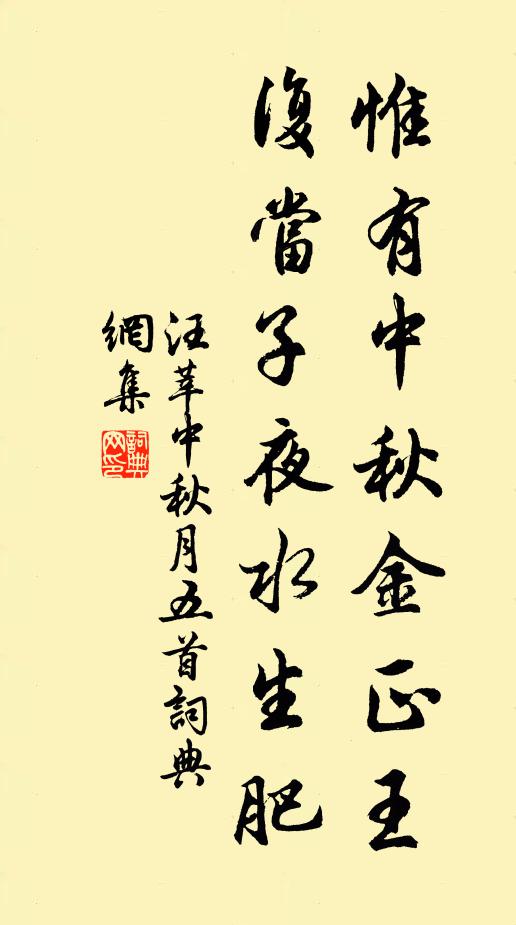 惟有中秋金正王
復當子夜水生肥
汪莘中秋月五首詞典
網集
詞典网印